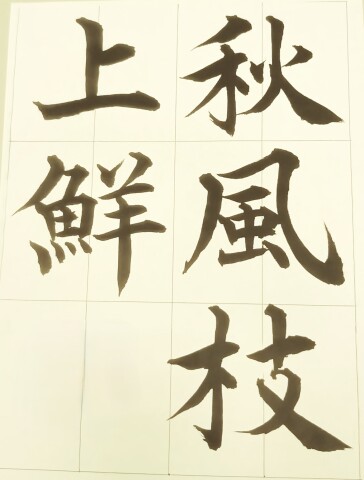 秋風枝
上鮮